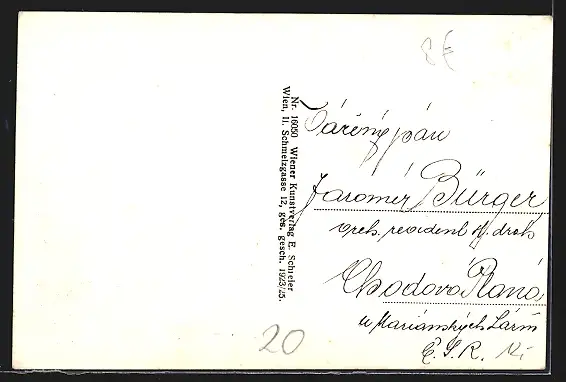 Nr. 16050 Wiener Kunstverlag E. Schreier
Wien, II. Schmelzgasse 12, ges. gesch. 1923/25.
Vážený pán
Jaromér Bürger
Chodová Planá
u Mariánských Lázní
Č. S. R.
20